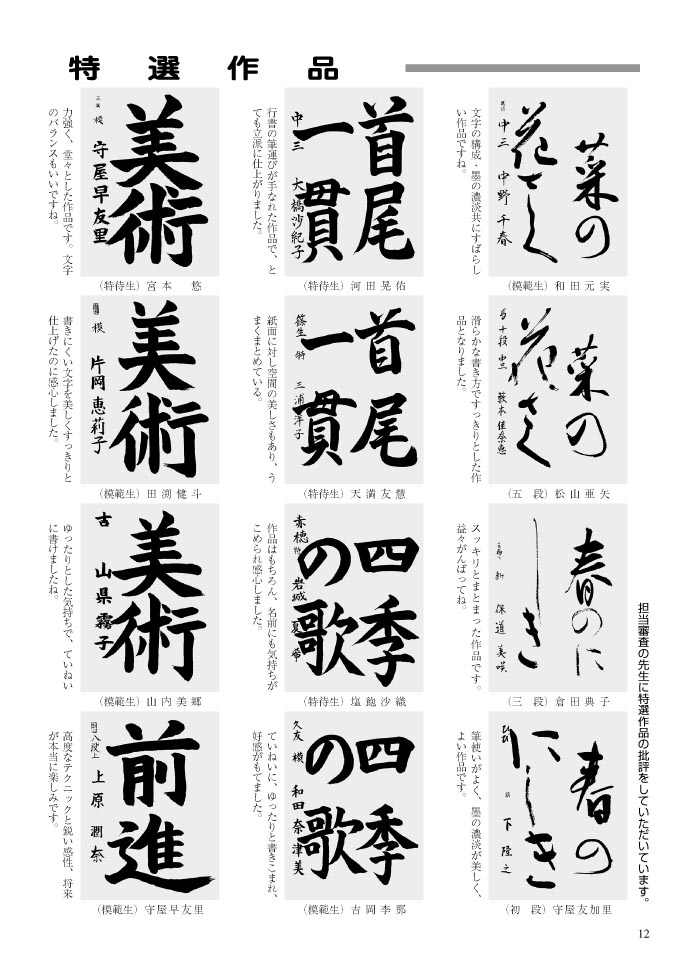 特選作品
担当審査の先生に特選作品の批評をしていただいています。
菜の
花さく
中三 中野千春
文字の構成・墨の濃淡共にすばらし
い作品ですね。
（模範生）和田元実
首尾
一貫
中三 大橋沙紀子
行書の筆運びが手なれた作品で、と
ても立派に仕上がりました。
（特待生）河田晃佑
美術
模 守屋早友里
力強く、堂々とした作品です。文字
のバランスもいいですね。
（特待生）宮本 悠
菜の
花さく
十段 中三 藪本佳奈恵
滑らかな書き方ですっきりとした作
品となりました。
（五 段）松山亜矢
首尾
一貫
篠生 三浦洋子
紙面に対し空間の美しさもあり、う
まくまとめている。
（特待生）天満友慧
美術
模 片岡恵莉子
書きにくい文字を美しくすっきりと
仕上げたのに感心しました。
（模範生）田渕健斗
春のに
しき
新 保道美咲
スッキリとまとまった作品です。
益々がんばってね。
（三 段）倉田典子
四季
の歌
赤穂 特 岩城夏希
作品はもちろん、名前にも気持ちが
こめられ感心しました。
（特待生）塩飽沙織
美術
古 山県霧子
ゆったりとした気持ちで、ていねい
に書けましたね。
（模範生）山内美郷
春の
にしき
下 陸之
筆使いがよく、墨の濃淡が美しく、
よい作品です。
（初 段）守屋友加里
四季
の歌
久友 模 和田奈津美
ていねいに、ゆったりと書きこまれ、
好感がもてました。
（模範生）吉岡李那
前進
八段上 上原潤奈
高度なテクニックと鋭い感性、将来
が本当に楽しみです。
（模範生）守屋早友里
12